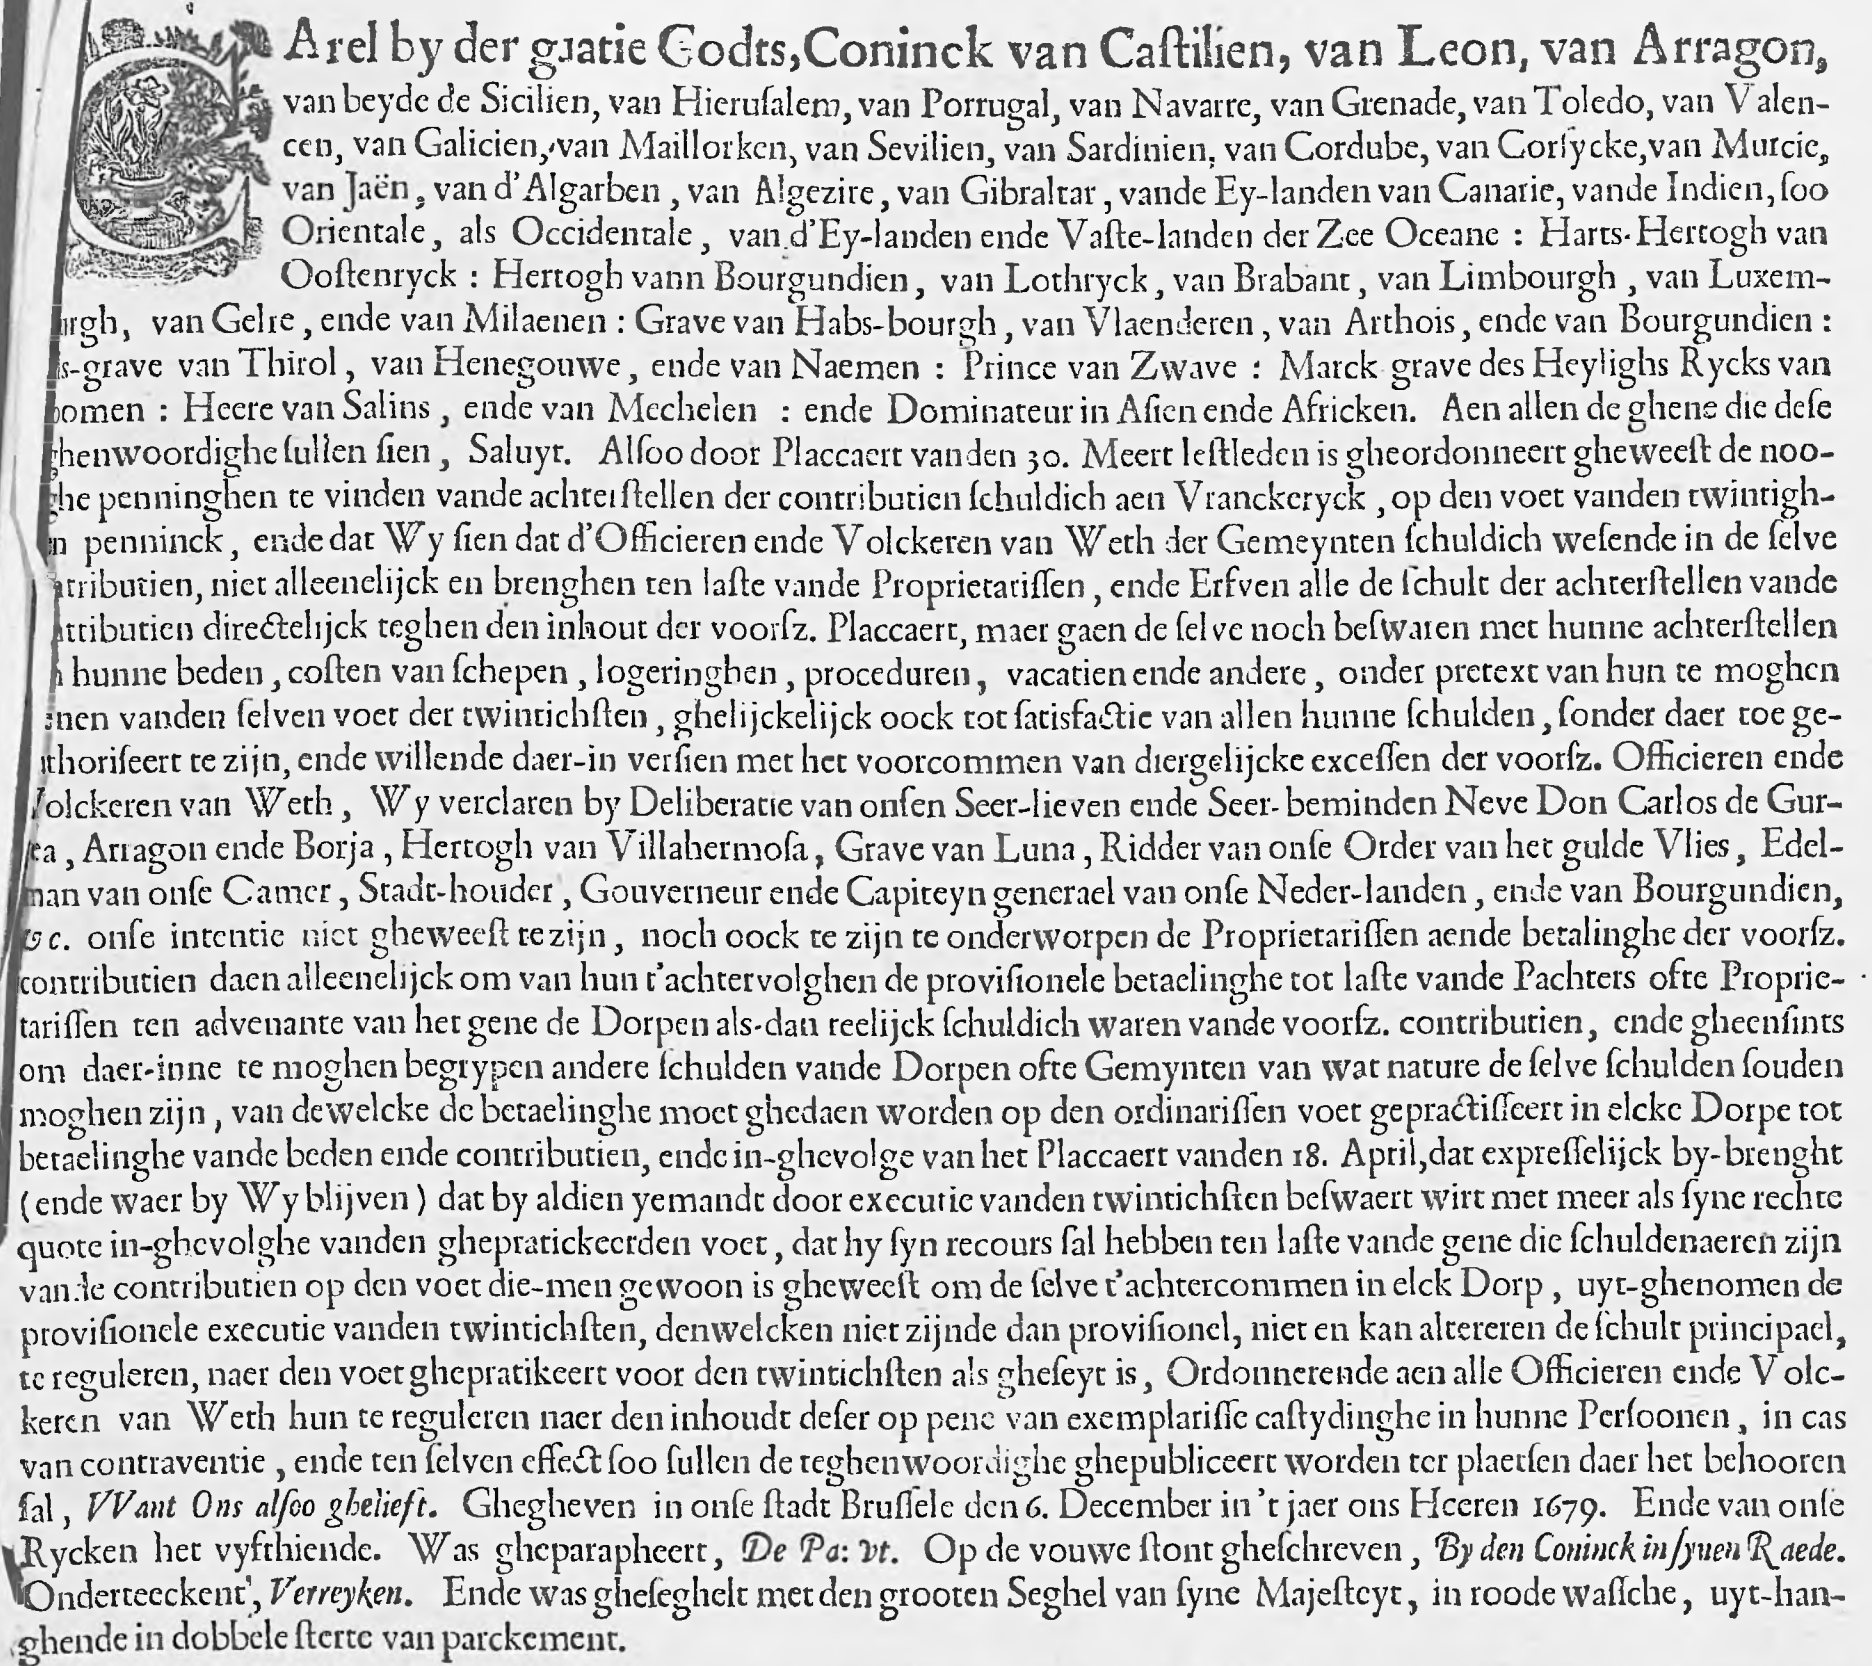 CArel by der gratie Godts, Coninck van Caſtilien, van Leon, van Arragon,
van beyde de Sicilien, van Hieruſalem, van Porrugal, van Navarre, van Grenade, van Toledo, van Valen-
cen, van Galicien, van Maillorken, van Sevilien, van Sardinien, van Cordube, van Corſycke, van Murcie,
van Jaën, van d'Algarben, van Algezire, van Gibraltar, vande Ey-landen van Canarie, vande Indien, ſoo
Orientale, als Occidentale, van d'Ey-landen ende Vaſte-landen der Zee Oceane : Harts-Hertogh van
Ooſtenryck : Hertogh vann Bourgundien, van Lothryck, van Brabant, van Limbourgh, van Luxem-
urgh, van Gelre, ende van Milaenen : Grave van Habs-bourgh, van Vlaenderen, van Arthois, ende van Bourgundien :
s-grave van Thirol, van Henegouwe, ende van Naemen : Prince van Zwave : Marck grave des Heylighs Rycks van
omen : Heere van Salins, ende van Mechelen : ende Dominateur in Aſien ende Africken. Aen allen de ghene die deſe
ghenwoordighe ſullen ſien, Saluyt. Alſoo door Placcaert vanden 30. Meert leſtleden is gheordonneert gheweeſt de noo-
ghe penninghen te vinden vande achterſtellen der contributien ſchuldich aen Vranckeryck, op den voet vanden twintigh-
n penninck, ende dat Wy ſien dat d'Officieren ende Volckeren van Weth der Gemeynten ſchuldich weſende in de ſelve
tributien, niet alleenelijck en brenghen ten laſte vande Proprietariſſen, ende Erfven alle de ſchult der achterſtellen vande
tributien directelijck teghen den inhout der voorſz. Placcaert, maer gaen de ſelve noch beſwaren met hunne achterſtellen
hunne beden, coſten van ſchepen, logeringhen, proceduren, vacatien ende andere, onder pretext van hun te moghen
enen vanden ſelven voet der twintichſten, ghelijckelijck oock tot ſatisfactie van allen hunne ſchulden, ſonder daer toe ge-
thoriſeert te zijn, ende willende daer-in verſien met het voorcommen van diergelijcke exceſſen der voorſz. Officieren ende
Volckeren van Weth, Wy verclaren by Deliberatie van onſen Seer-lieven ende Seer-beminden Neve Don Carlos de Gur-
rea, Arragon ende Borja, Hertogh van Villahermoſa, Grave van Luna, Ridder van onſe Order van het gulde Vlies, Edel-
man van onſe Camer, Stadt-houder, Gouverneur ende Capiteyn generael van onſe Neder-landen, ende van Bourgundien,
&c. onſe intentie niet gheweeſt te zijn, noch oock te zijn te onderworpen de Proprietariſſen aende betalinghe der voorſz.
contributien daen alleenelijck om van hun t'achtervolghen de proviſionele betaelinghe tot laſte vande Pachters ofte Proprie-
tariſſen ten advenante van het gene de Dorpen als-dan reelijck ſchuldich waren vande voorſz. contributien, ende gheenſints
om daer-inne te moghen begrypen andere ſchulden vande Dorpen ofte Gemynten van wat nature de ſelve ſchulden ſouden
moghen zijn, van dewelcke de betaelinghe moet ghedaen worden op den ordinariſſen voet gepractiſſeert in elcke Dorpe tot
betaelinghe vande beden ende contributien, ende in-ghevolge van het Placcaert vanden 18. April, dat expreſſelijck by-brenght
(ende waer by Wy blijven) dat by aldien yemandt door executie vanden twintichſten beſwaert wirt met meer als ſyne rechte
quote in-ghevolghe vanden ghepratickeerden voet, dat hy ſyn recours ſal hebben ten laſte vande gene die ſchuldenaeren zijn
vande contributien op den voet die-men gewoon is gheweeſt om de ſelve t'achtercommen in elck Dorp, uyt-ghenomen de
proviſionele executie vanden twintichſten, denwelcken niet zijnde dan proviſionel, niet en kan altereren de ſchult principael,
te reguleren, naer den voet ghepratikeert voor den twintichſten als gheſeyt is, Ordonnerende aen alle Officieren ende Volc-
keren van Weth hun te reguleren naer den inhoudt deſer op pene van exemplariſſe caſtydinghe in hunne Perſoonen, in cas
van contraventie, ende ten ſelven effect ſoo ſullen de teghenwoordighe ghepubliceert worden ter plaetſen daer het behooren
ſal, VVant Ons alſoo ghelieft. Ghegheven in onſe ſtadt Bruſſele den 6. December in 't jaer ons Heeren 1679. Ende van onſe
Rycken het vyfthiende. Was gheparapheert, De Pa: vt. Op de vouwe ſtont gheſchreven, By den Coninck in ſynen Raede.
Onderteeckent, Verreyken. Ende was gheſeghelt met den grooten Seghel van ſyne Majeſteyt, in roode waſſche, uyt-han-
ghende in dobbele ſterte van parckement.